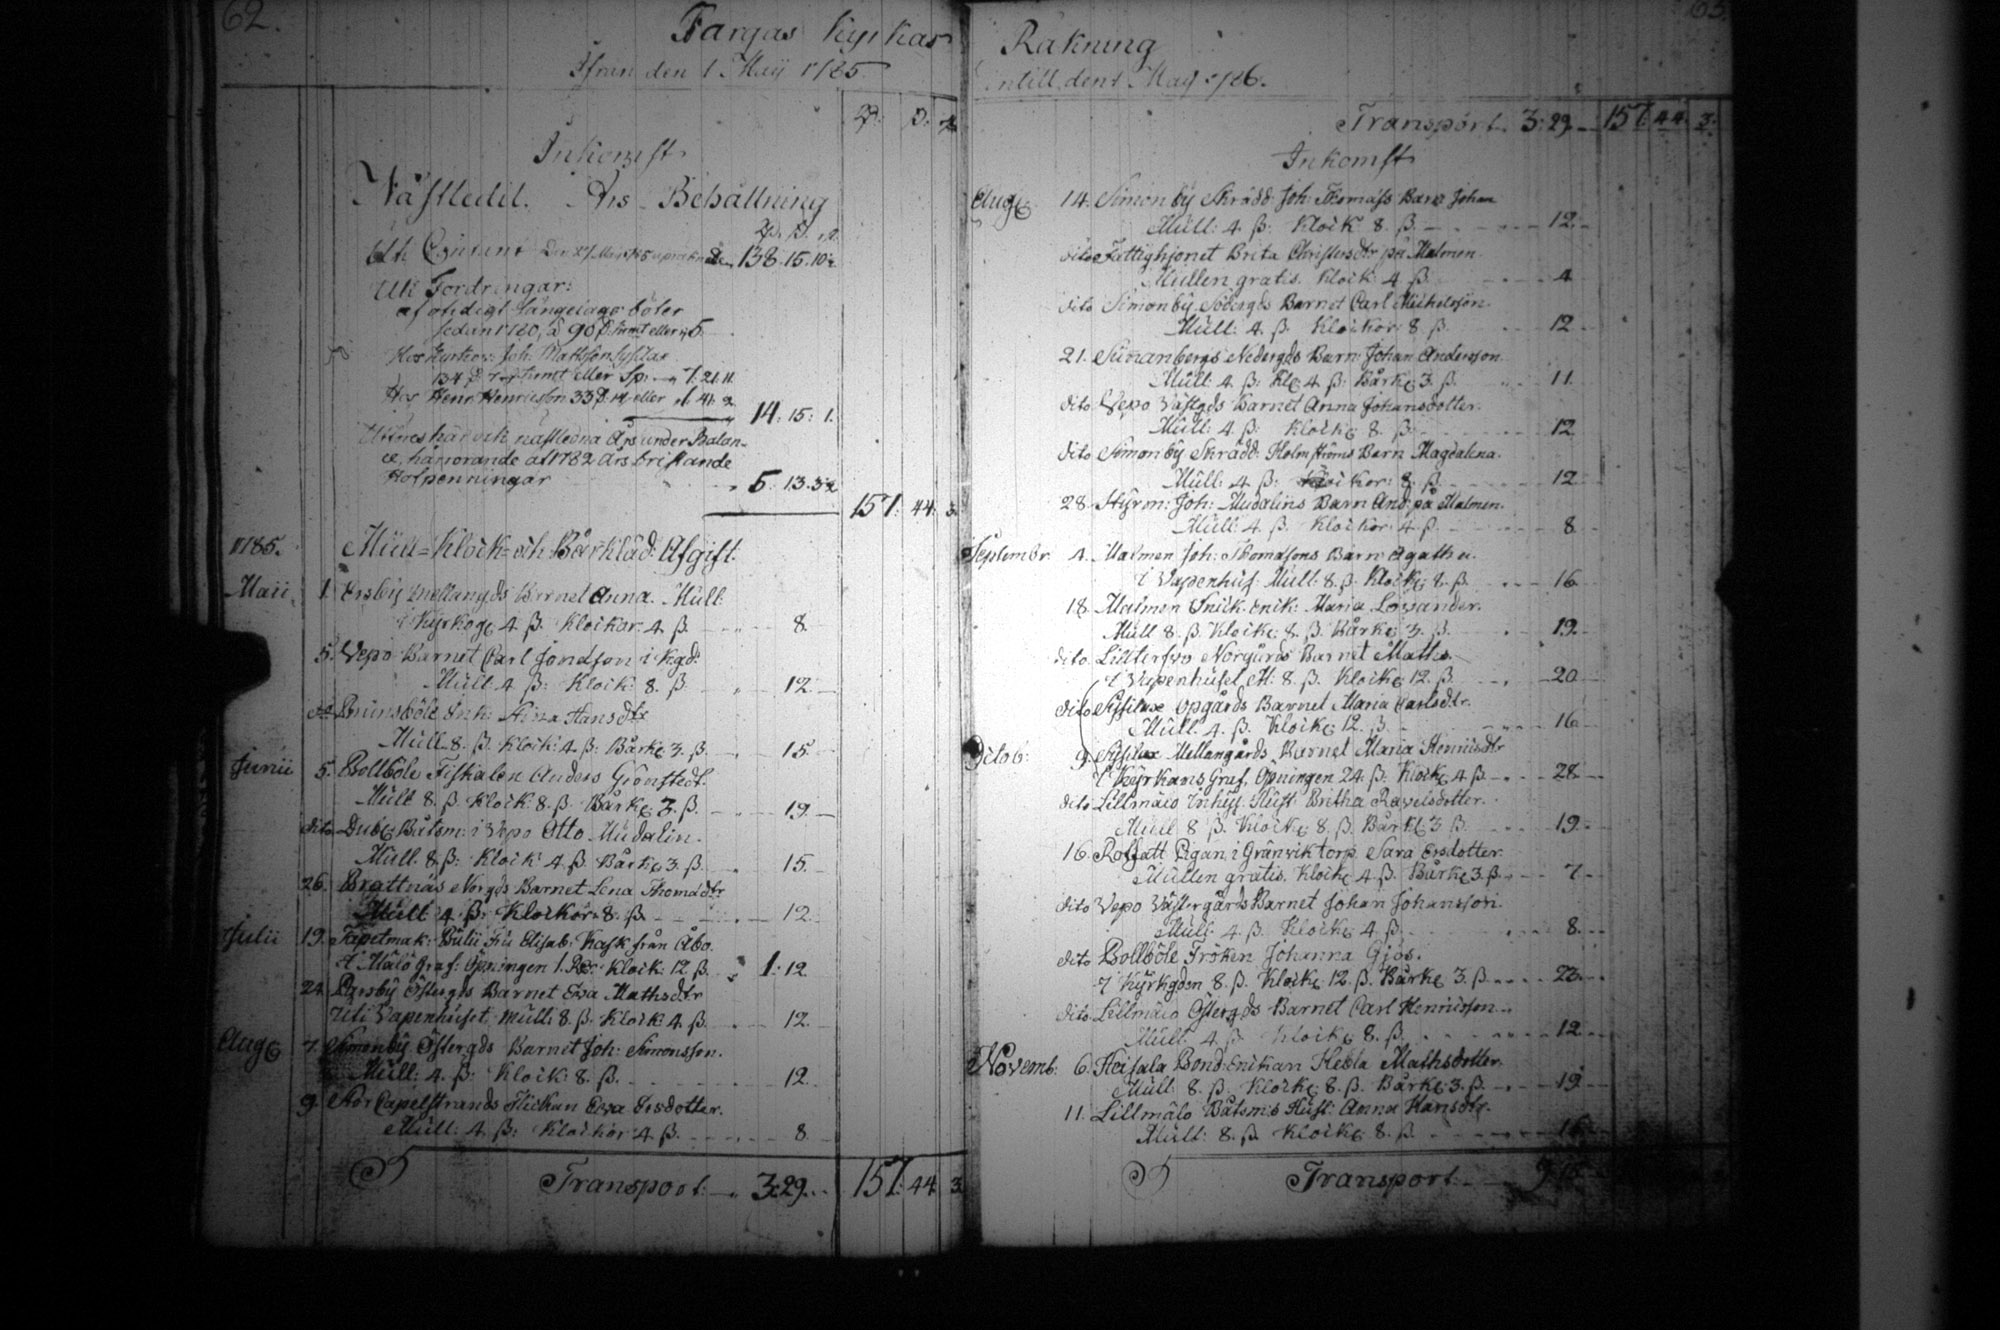 62.
Pargas Kyrkas
Ifrån den 1 Maij 1785
Inkomst
Nästledit Års Behållning
138. 15. 10
Utk Fordringar:
af ofidigt Sängelags böter
Hos Kyrkov: Joh: Mattsson
7. 21. 11.
Hos Henr: Henricsson 33 eller
14. 15. 1.
Utföres här ock nästledna Års under Balan-
ce, härrörande af 1782 Års bristande
Hofpenningar 5. 13. 3
157. 44. 3.
1785. Mull- Klock- och Bårkläd: Afgift.
Maii 1. Ersby Mellangds Barnet Anna. Mull
i Kyrkog 4 ß. Klockor 4 ß 8.
5. Vepo Barnet Carl Jondson i Kgd:
Mull 4 ß: Klock: 8. ß 12.
Brunsböle Enk: Stina Hansdtr
Mull 8. ß. Klock: 4 ß: Bårk 3. ß. 15.
Junii 5. Bollböle Fiskalen Anders Grönstedt.
Mull 8. ß. Klock: 8. ß. Bårk 3. ß. 19.
dito Båtsm: i Vepo Otto Mudalin.
Mull. 8. ß: Klock 4 ß. Bårk 3. ß. 15.
26. Brattnäs Norgds Barnet Lena Thomadtr
Mull 4 ß: Klockor 8. ß. 12.
Julii 19. Tapetmak: Fru Elisab: Kask från Åbo.
Graf: Öpningen 1. Klock: 12 ß. 1. 12.
24. Parsby Östergds Barnet Eva Mathsdtr
Uti Vapenhuset Mull: 8. ß. Klock 4 ß. 12.
Aug 7. Simonby Östergds Barnet Joh: Simonsson.
Mull: 4. ß: Klock: 8. ß. 12.
9. Stor Capelstrands Flickan Eva Ersdotter.
Mull: 4 ß: Klockor 4 ß. 8.
Transport: 3. 29. 157. 44. 3.
63.
Räkning
intill den 1 Maij 1786.
Transport 3. 29. 157. 44. 3.
Inkomst
Aug 14. Simonby Skrädd: Joh: Thomass Barn Johan
Mull: 4. ß. Klock: 8. ß. 12.
dito Fattighjonet Brita Christersdtr på Malmen
Mullen gratis. Klock: 4 ß. 4
dito Simonby Södergds Barnet Carl Michelsson.
Mull: 4. ß. Klockor: 8. ß. 12
21. Simonbergs Nedergds Barn: Johan Andersson
Mull: 4. ß: Kl 4 ß: Bårk 3. ß. 11.
dito Vepo Västgds Barnet Anna Johansdotter.
Mull: 4. ß: Klock 8. ß. 12
dito Simonby Skrädd: Holmströms Barn Magdalena.
Mull: 4 ß: Klockor: 8. ß. 12
28. Styrm: Joh: Mudalins Barn And: på Malmen.
Mull: 4. ß. Klockor: 4 ß. 8
Septembr 4. Malmen Joh: Thomasons Barn Agatha.
i Vapenhus: Mull: 8. ß. Klock: 8. ß. 16
18. Malmen Snick: Enk: Maria
Mull 8. ß. Klock: 8. ß. Bårk 3. ß. 19.
dito Lilltervo Norgårds Barnet Maths.
i Vapenhuset M: 8. ß. Klock 12. ß. 20
dito Sysilax Opgårds Barnet Maria Carlsdtr.
Mull. 4. ß. Klock: 12. ß. 16
Octob: 9. Sysilax Mellangårds Barnet Maria Henricsdtr
i Kyrkans Graf, Öpningen 24. ß. Klock 4 ß. 28
dito Lillmälö Inhys: Hust: Britha Ravelsdotter.
Mull 8 ß. Klock 8. ß. Bårk 3 ß. 19.
16. Rolfsatt Pigan i Gränvik torp Sara Ersdotter.
Mullen gratis. Klock: 4 ß. Bårk 3 ß. 7.
dito Vepo Västergårds Barnet Johan Johansson.
Mull: 4. ß. Klock 4 ß. 8.
dito Bollböle Fröken Johanna Gjös.
I Kyrkgden 8. ß. Klock 12. ß. Bårk 3 ß. 23.
dito Lillmälö Östergds Barnet Carl Henricsson.
Mull: 4. ß. Klock 8. ß. 12.
Novemb: 6. Heisala Bond: Enkan Hebla Mathsdotter.
Mull: 8. ß. Klock: 8. ß. Bårk: 3. ß. 19.
11. Lillmälö Båtsm:s Hust: Anna Hansdtr.
Mull: 8. ß. Klock 8. ß. 16
Transport